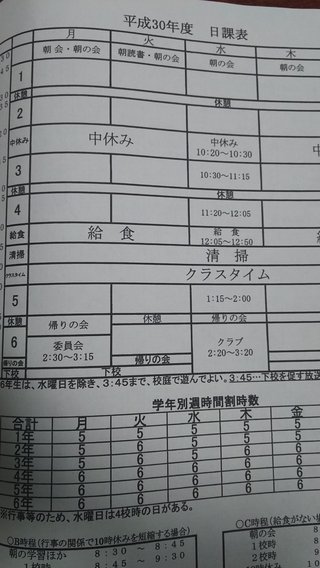 平成30年度 日課表
月 火 水 木
朝会・朝の会 朝読書・朝の会 朝の会 朝の会
1
休憩 休憩
2
中休み 中休み 中休み
10:20～10:30
3 10:30～11:15
休憩 休憩
4 11:20～12:05
給食 給食 給食
12:05～12:50
清掃 清掃
クラスタイム クラスタイム
5 1:15～2:00
休憩 帰りの会 休憩 帰りの会
6 委員会 クラブ
2:30～3:15 2:20～3:20
帰りの会 帰りの会
下校 下校
6年生は、水曜日を除き、3:45まで、校庭で遊んでよい。3:45…下校を促す放送
学年別週時間割時数
合計 月 火 水 木 金
1年 5 5 5 5 5
2年 5 6 5 5 5
3年 5 6 5 6
4年 5 6 6 6
5年 6 6 6
6年 6 6 6
※行事等のため、水曜日は4校時の日がある。
○B時程(行事の関係で10時休みを短縮する場合)
朝の学習ほか 8:30 ～ 8:45
1校時 8:45 ～ 9:30
○C時程(給食がない
朝の会
1校時
2校時